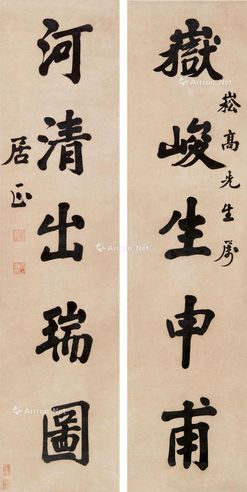 嶽峻生申甫
崧高先生屬
河清出瑞圖
居正
Artron.Net
Artron.Net